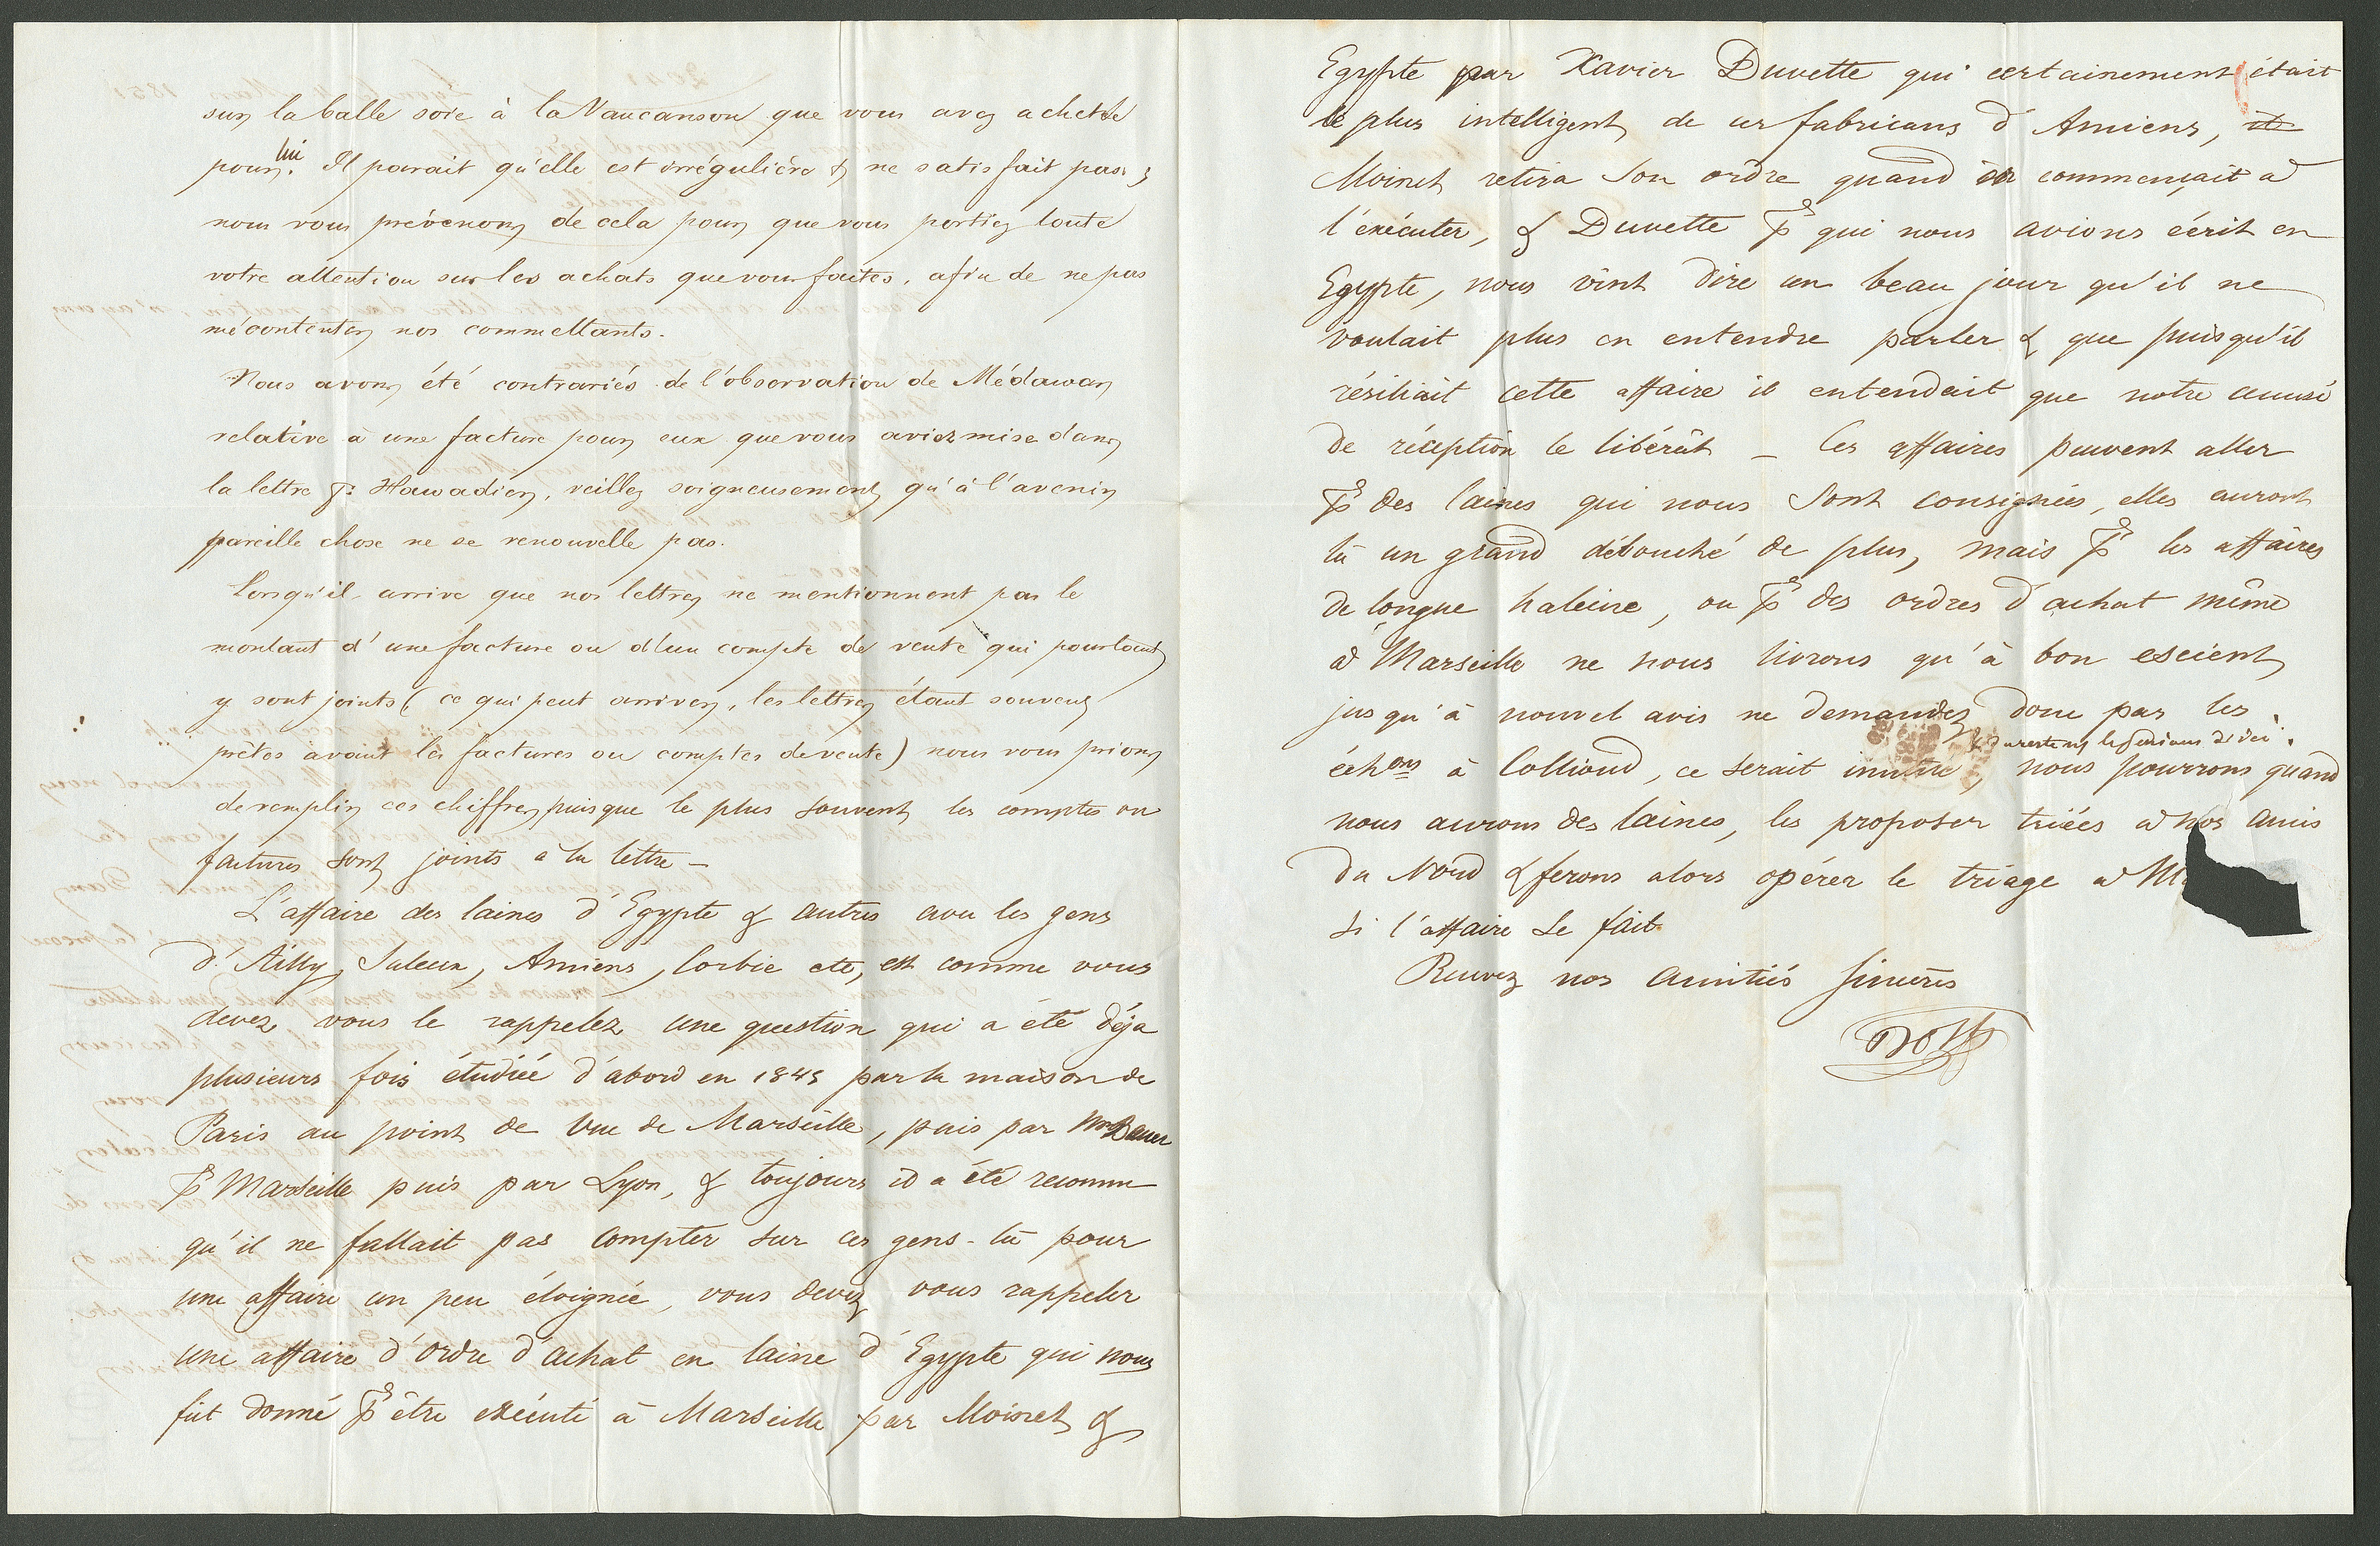 sur la balle soie à la Vaucanson que vous avez achetée
pour lui. Il parait qu'elle est irrégulière & ne satisfait pas;
nous vous prévenons de cela pour que vous portiez toute
votre attention sur les achats que vous faites, afin de ne pas
mécontenter nos commettants.
Nous avons été contrariés de l'observation de Médawar
relative à une facture pour eux que vous aviez mise dans
la lettre pr Hawadier, veillez soigneusement qu'à l'avenir
pareille chose ne se renouvelle pas.
Lorsqu'il arrive que nos lettres ne mentionnent pas le
montant d'une facture ou d'un compte de vente qui pourtant
y sont joints (ce qui peut arriver, les lettres étant souvent
prêtes avant les factures ou comptes de vente) nous vous prions
de remplir ces chiffres puisque le plus souvent les comptes ou
factures sont joints à la lettre –
L'affaire des laines d'Egypte & autres avec les gens
d'Ailly, Saleux, Amiens, Corbie etc, est comme vous
devez vous le rappelez une question qui a été déja
plusieurs fois étudiée d'abord en 1845 par la maison de
Paris au point de vue de Marseille, puis par
pr Marseille puis par Lyon, & toujours il a été reconnu
qu'il ne fallait pas compter sur ces gens-là pour
une affaire un peu éloignée, vous devez vous rappeler
une affaire d'ordre d'achat en laine d'Egypte qui nous
fut donné pr être exécuté à Marseille par Moinet &
Egypte par Xavier Duvette qui certainement était
le plus intelligent de ces fabricans d'Amiens, il
Moinet retira son ordre quand on commençait à
l'exécuter, & Duvette pr qui nous avions écrit en
Egypte, nous vint dire un beau jour qu'il ne
voulait plus en entendre parler & que puisqu'il
résiliait cette affaire il entendait que notre accusé
de réception le libérât – Ces affaires peuvent aller
pr des laines qui nous sont consignées, elles auront
là un grand débouché de plus, mais pr les affaires
de longue haleine, ou pr des ordres d'achat même
à Marseille ne nous livrons qu'à bon escient
jusqu'à nouvel avis ne demandez donc pas les
échons à Colliaud, ce serait inutile, nous pourrons quand
nous aurons des laines, les proposer triées à nos amis
du Nord & ferons alors opérer le triage à
si l'affaire se fait.
Recevez nos amitiés sincères